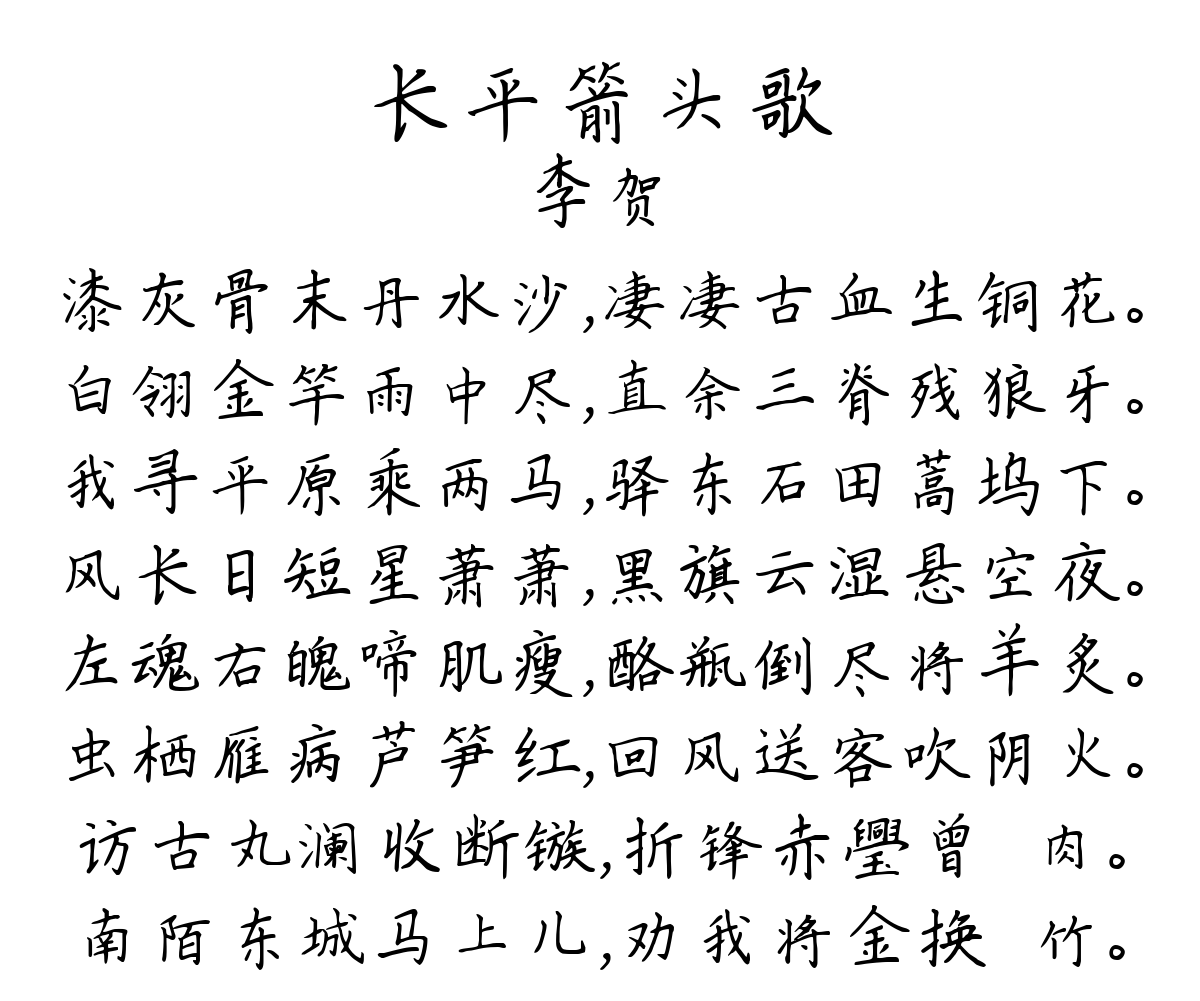 长平箭头歌
李贺
漆灰骨末丹水沙,凄凄古血生铜花。
白翎金竿雨中尽,直余三脊残狼牙。
我寻平原乘两马,驿东石田蒿坞下。
风长日短星萧萧,黑旗云湿悬空夜。
左魂右魄啼肌瘦,酪瓶倒尽将羊炙。
虫栖雁病芦笋红,回风送客吹阴火。
访古丸澜收断镞,折锋赤璺曾 肉。
南陌东城马上儿,劝我将金换 竹。